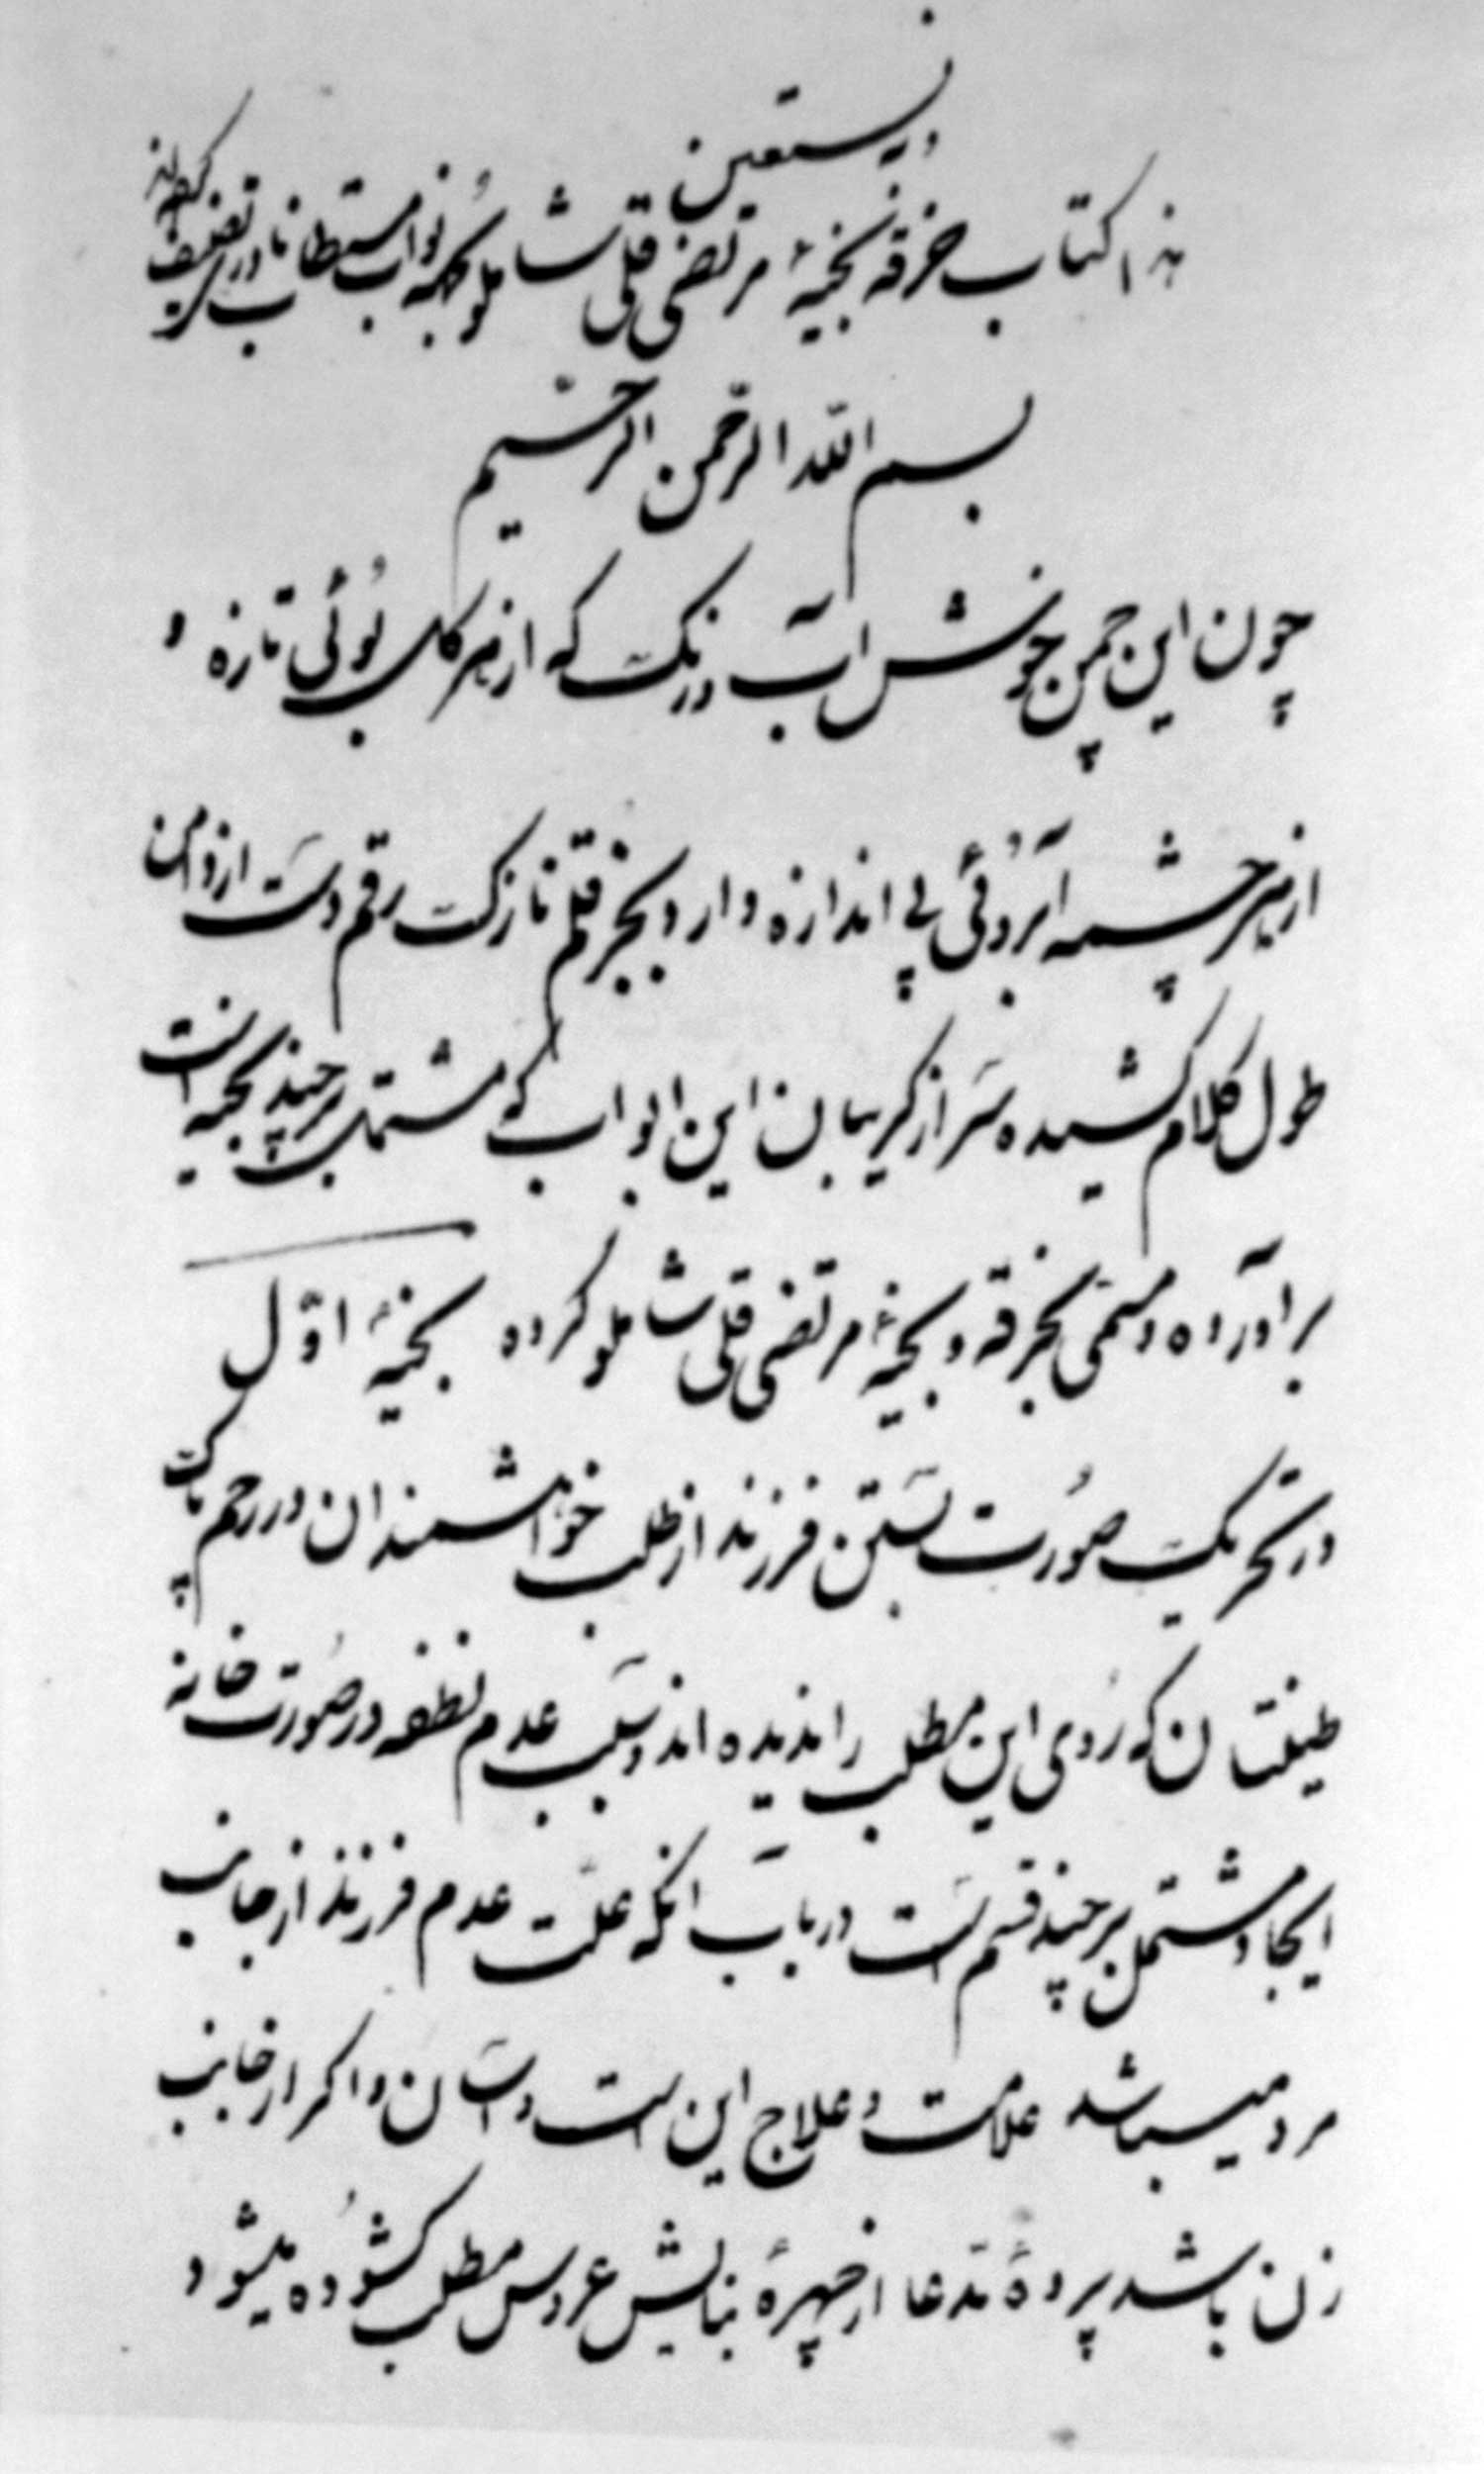 و به نستعین
هذا کتاب خرقه بخیهٔ مرتضی قلی شاملو بجهه نواب مستطاب نادر تصنیف
بسم الله الرحمن الرحیم
چون این چمن خوش آب و رنگ که از هر گل بوئی تازه و
از هر چشمه آبروئی بی اندازه دارد بجز قلم نازک رقم دست از دامن
طول کلام کشیده سر از گریبان این ابواب که مشتمل بر چند بخیه است
برآورده و مسمی بخرقه و بخیهٔ مرتضی قلی شاملو کرده بخیهٔ اول
در تحریک صورت بستن فرزند از طلب خواهشمندان در رحم پاک
طینتان که روی این مطلب را ندیده اند و سبب عدم نطفه در صورت خانه
ایجاد مشتمل بر چند قسم است در باب آنکه علت عدم فرزند از جانب
مرد میباشد علامت و علاج این است و آسان و اگر از جانب
زن باشد پردهٔ مدعا از چهرهٔ بنایش عروس مطلب کشوده میشود